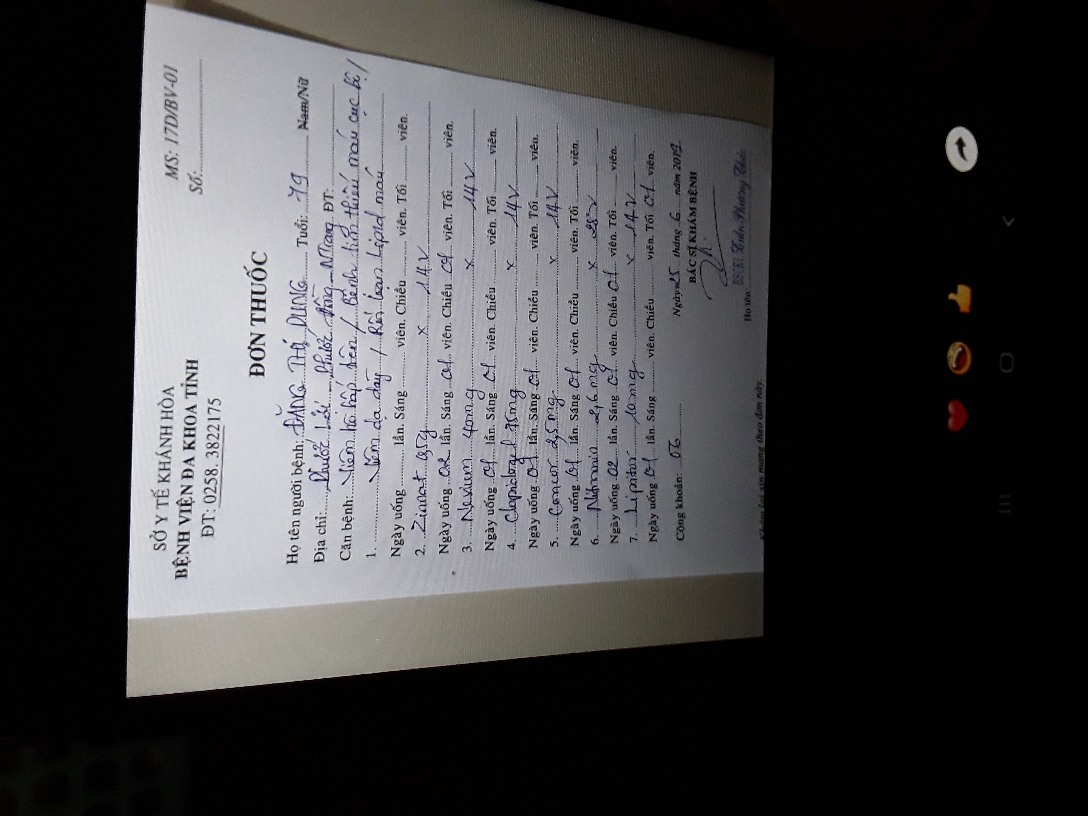 SỞ Y TẾ KHÁNH HÒA
BỆNH VIỆN ĐA KHOA TỈNH
ĐT: 0258. 3822175
MS: 17D/BV-01
Số:
ĐƠN THUỐC
Họ tên người bệnh: ĐẶNG THỊ DUNG Tuổi: 79 Nam/Nữ
Địa chỉ: Phước Lợi - Phước Đồng - NTrang ĐT:
Căn bệnh: Viêm hô hấp trên / Bệnh tim thiếu máu cục bộ /
1. Viêm dạ dày / Rối loạn Lipid máu
Ngày uống lần. Sáng viên. Chiều viên. Tối viên.
2. Zinnat 0,5g x 14V
Ngày uống 02 lần. Sáng 01 viên. Chiều 01 viên. Tối viên.
3. Nexium 40mg x 14V
Ngày uống 01 lần. Sáng 01 viên. Chiều viên. Tối viên.
4. Clopidogel 75mg x 14V
Ngày uống 01 lần. Sáng 01 viên. Chiều viên. Tối viên.
5. Concor 2,5mg x 14V
Ngày uống 01 lần. Sáng 01 viên. Chiều viên. Tối viên.
6. 2,6mg x 28V
Ngày uống 02 lần. Sáng 01 viên. Chiều 01 viên. Tối viên.
7. Lipitor 10mg x 14V
Ngày uống 01 lần. Sáng viên. Chiều viên. Tối 01 viên.
Cộng khoản: 06
Ngày 25 tháng 6 năm 2019
BÁC SĨ KHÁM BỆNH
Họ tên: BSCKI Trần Phương
Khám lại xin mang theo đơn này